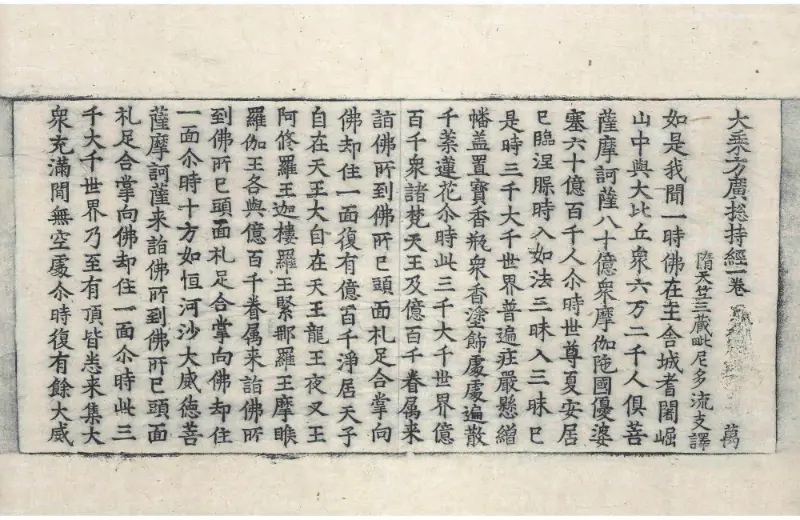 大乘方廣揔持經一卷 萬
隋天竺三蔵毗尼多流支譯
如是我聞一時佛在王舎城耆闍崛
山中與大比丘衆六万二千人俱菩
薩摩訶薩八十億衆摩伽陁國優婆
塞六十億百千人尒時世尊夏安居
已臨涅㬳時入如法三昧入三昧已
是時三千大千世界普遍莊嚴懸繒
幡盖置寶香瓶衆香塗飾處處遍散
千葉蓮花尒時此三千大千世界億
百千衆諸梵天王及億百千眷属来
詣佛所到佛所已頭面札足合掌向
佛却住一面復有億百千淨居天子
自在天王大自在天王龍王夜叉王
阿脩羅王迦樓羅王緊那羅王摩睺
羅伽王各與億百千眷属来詣佛所
到佛所已頭面札足合掌向佛却住
一面尒時十方如恒河沙大威徳菩
薩摩訶薩来詣佛所到佛所已頭面
札足合掌向佛却住一面尒時此三
千大千世界乃至有頂皆悉来集大
衆充滿閒無空處尒時復有餘大威